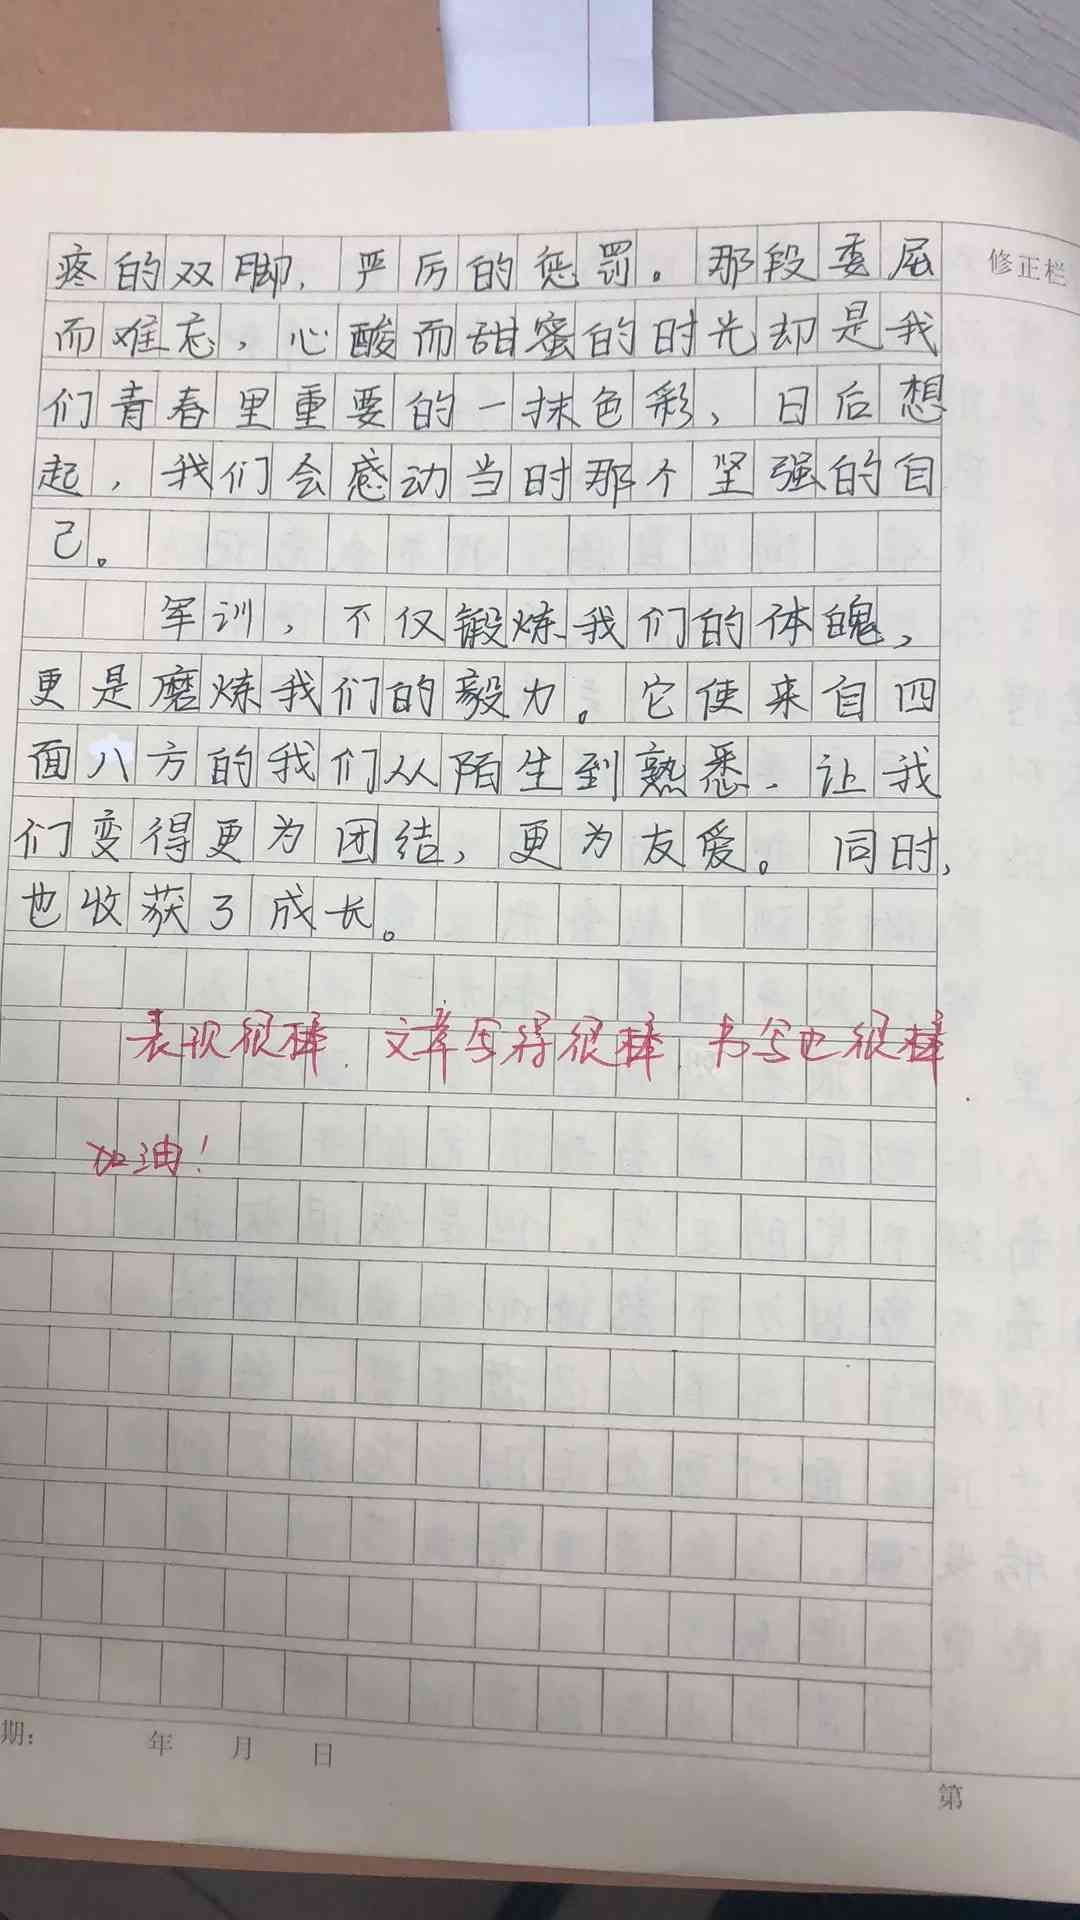 疼的双脚，严厉的惩罚。那段委屈
修正栏
而难忘，心酸而甜蜜的时光却是我
们青春里重要的一抹色彩，日后想
起，我们会感动当时那个坚强的自
己。
军训，不仅锻炼我们的体魄，
更是磨炼我们的毅力。它使来自四
面八方的我们从陌生到熟悉，让我
们变得更为团结，更为友爱。同时，
也收获了成长。
表现很棒，文章写得很棒，书写也很棒
加油！
期： 年 月 日
第